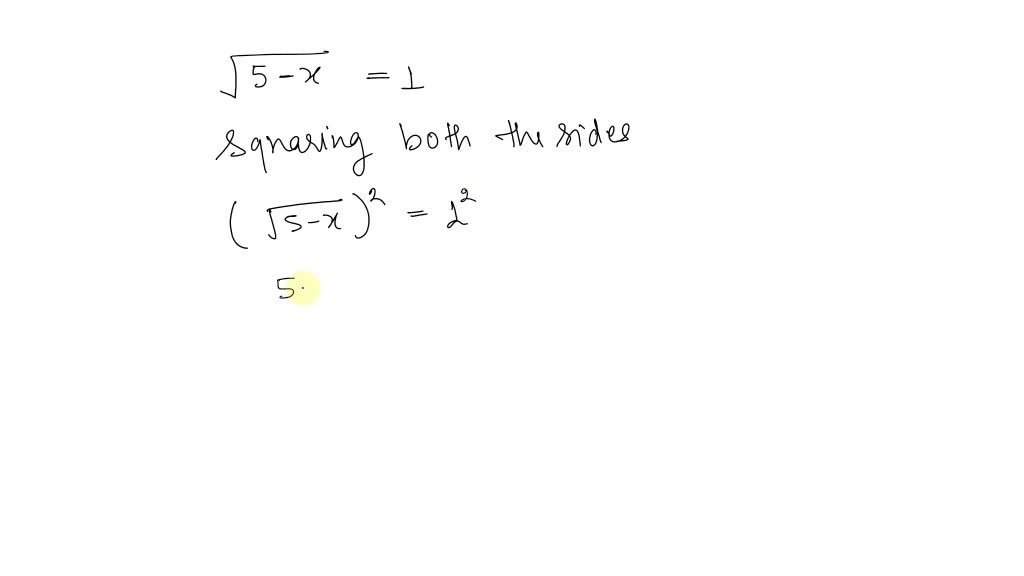 √(5-x) = 1
squaring both the sides
(√(5-x))² = 1²
5.